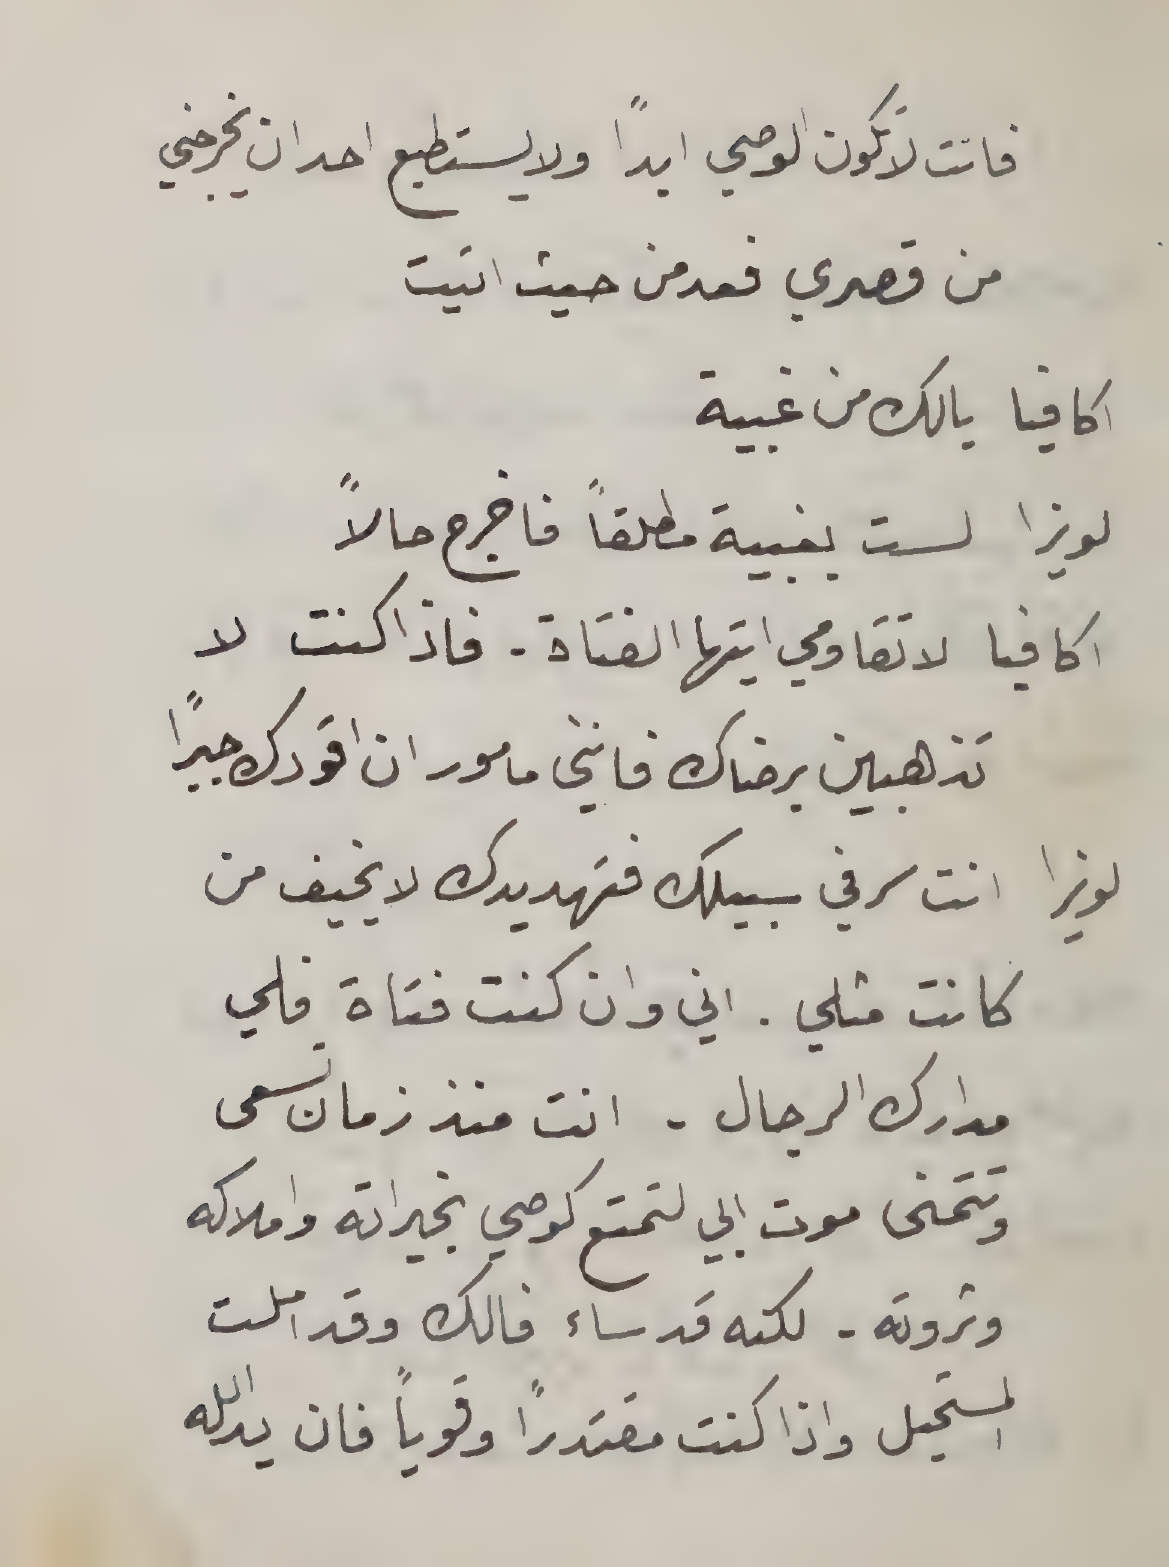 فانت لا تكون الوصي ابداً ولا يستطيع احد ان يخرجني
من قصري فعد من حيث اتيت
اكافيا يالك من غبية
لويزا لست بغبية مطلقاً فاخرج حالاً
اكافيا لا تقاومي ايتها الفتاة - فاذا كنت لا
تذهبين برضاك فانني مامور ان اقودك جبراً
لويزا انت سر في سبيلك فتهديدك لا يخيف من
كانت مثلي . اني وان كنت فتاة فلي
مدارك الرجال - انت منذ زمان تسعى
وتتمنى موت ابي لتمتع كوصي بخيراته واملاكه
وثروته - لكنه قد ساء فالك وقد املت
المستحيل واذا كنت مقتدراً وقوياً فان يد الله